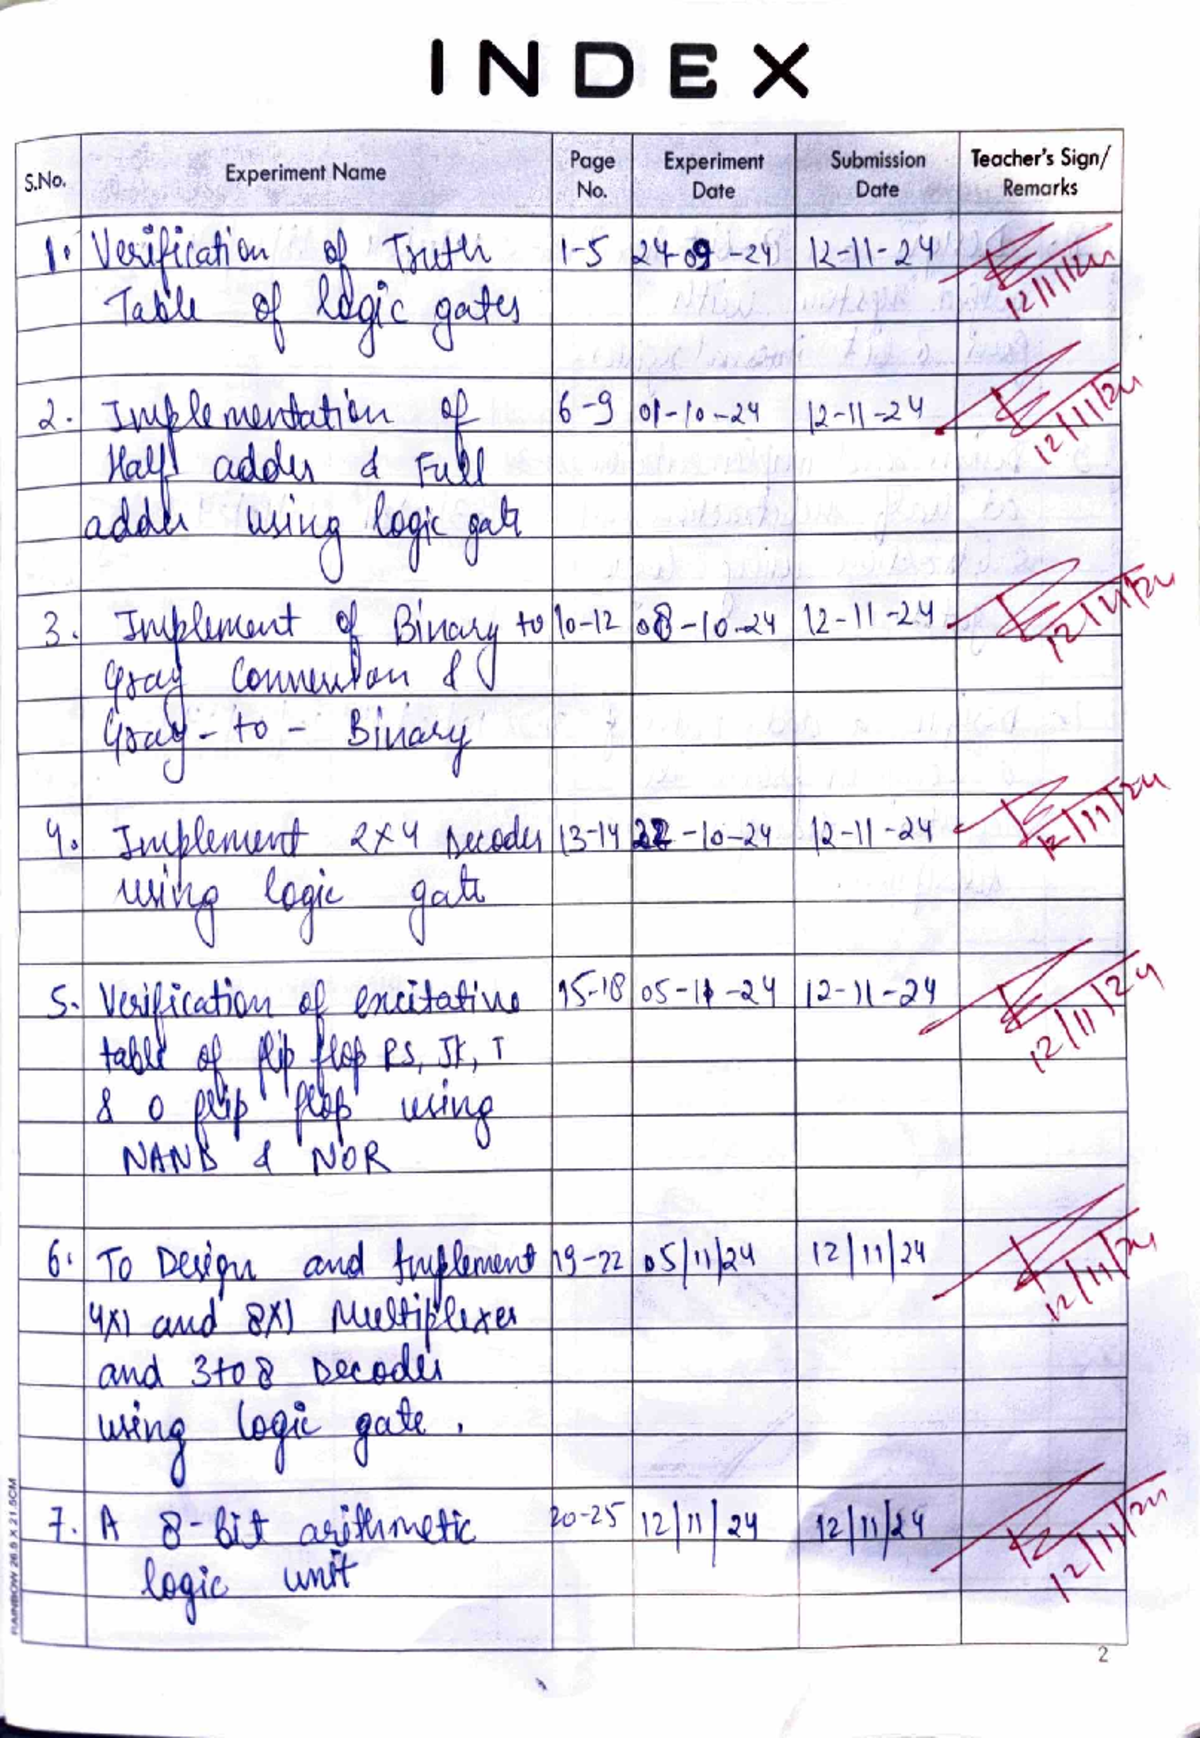 INDEX
S.No. Experiment Name Page No. Experiment Date Submission Date Teacher's Sign/ Remarks
1. Verification of Truth 1-5 24-09-24 12-11-24
Table of logic gates 12/11/24
2. Implementation of 6-9 01-10-24 12-11-24
Half adder & Full 12/11/24
adder using logic gate
3. Implement of Binary to 10-12 08-10-24 12-11-24 12/11/24
Gray Conversion &
Gray-to-Binary
4. Implement 2x4 Decoder 13-14 22-10-24 12-11-24 12/11/24
using logic gate
5. Verification of excitative 15-18 05-11-24 12-11-24
table of flip flop RS, JK, T 12/11/24
& D flip flop using
NAND & NOR
6. To Design and Implement 19-22 05/11/24 12/11/24 12/11/24
4x1 and 8x1 Multiplexer
and 3to8 Decoder
using logic gate.
7. A 8-bit arithmetic 20-25 12/11/24 12/11/24
logic unit 12/11/24
RAINBOW 26.5 X 21.5CM
2